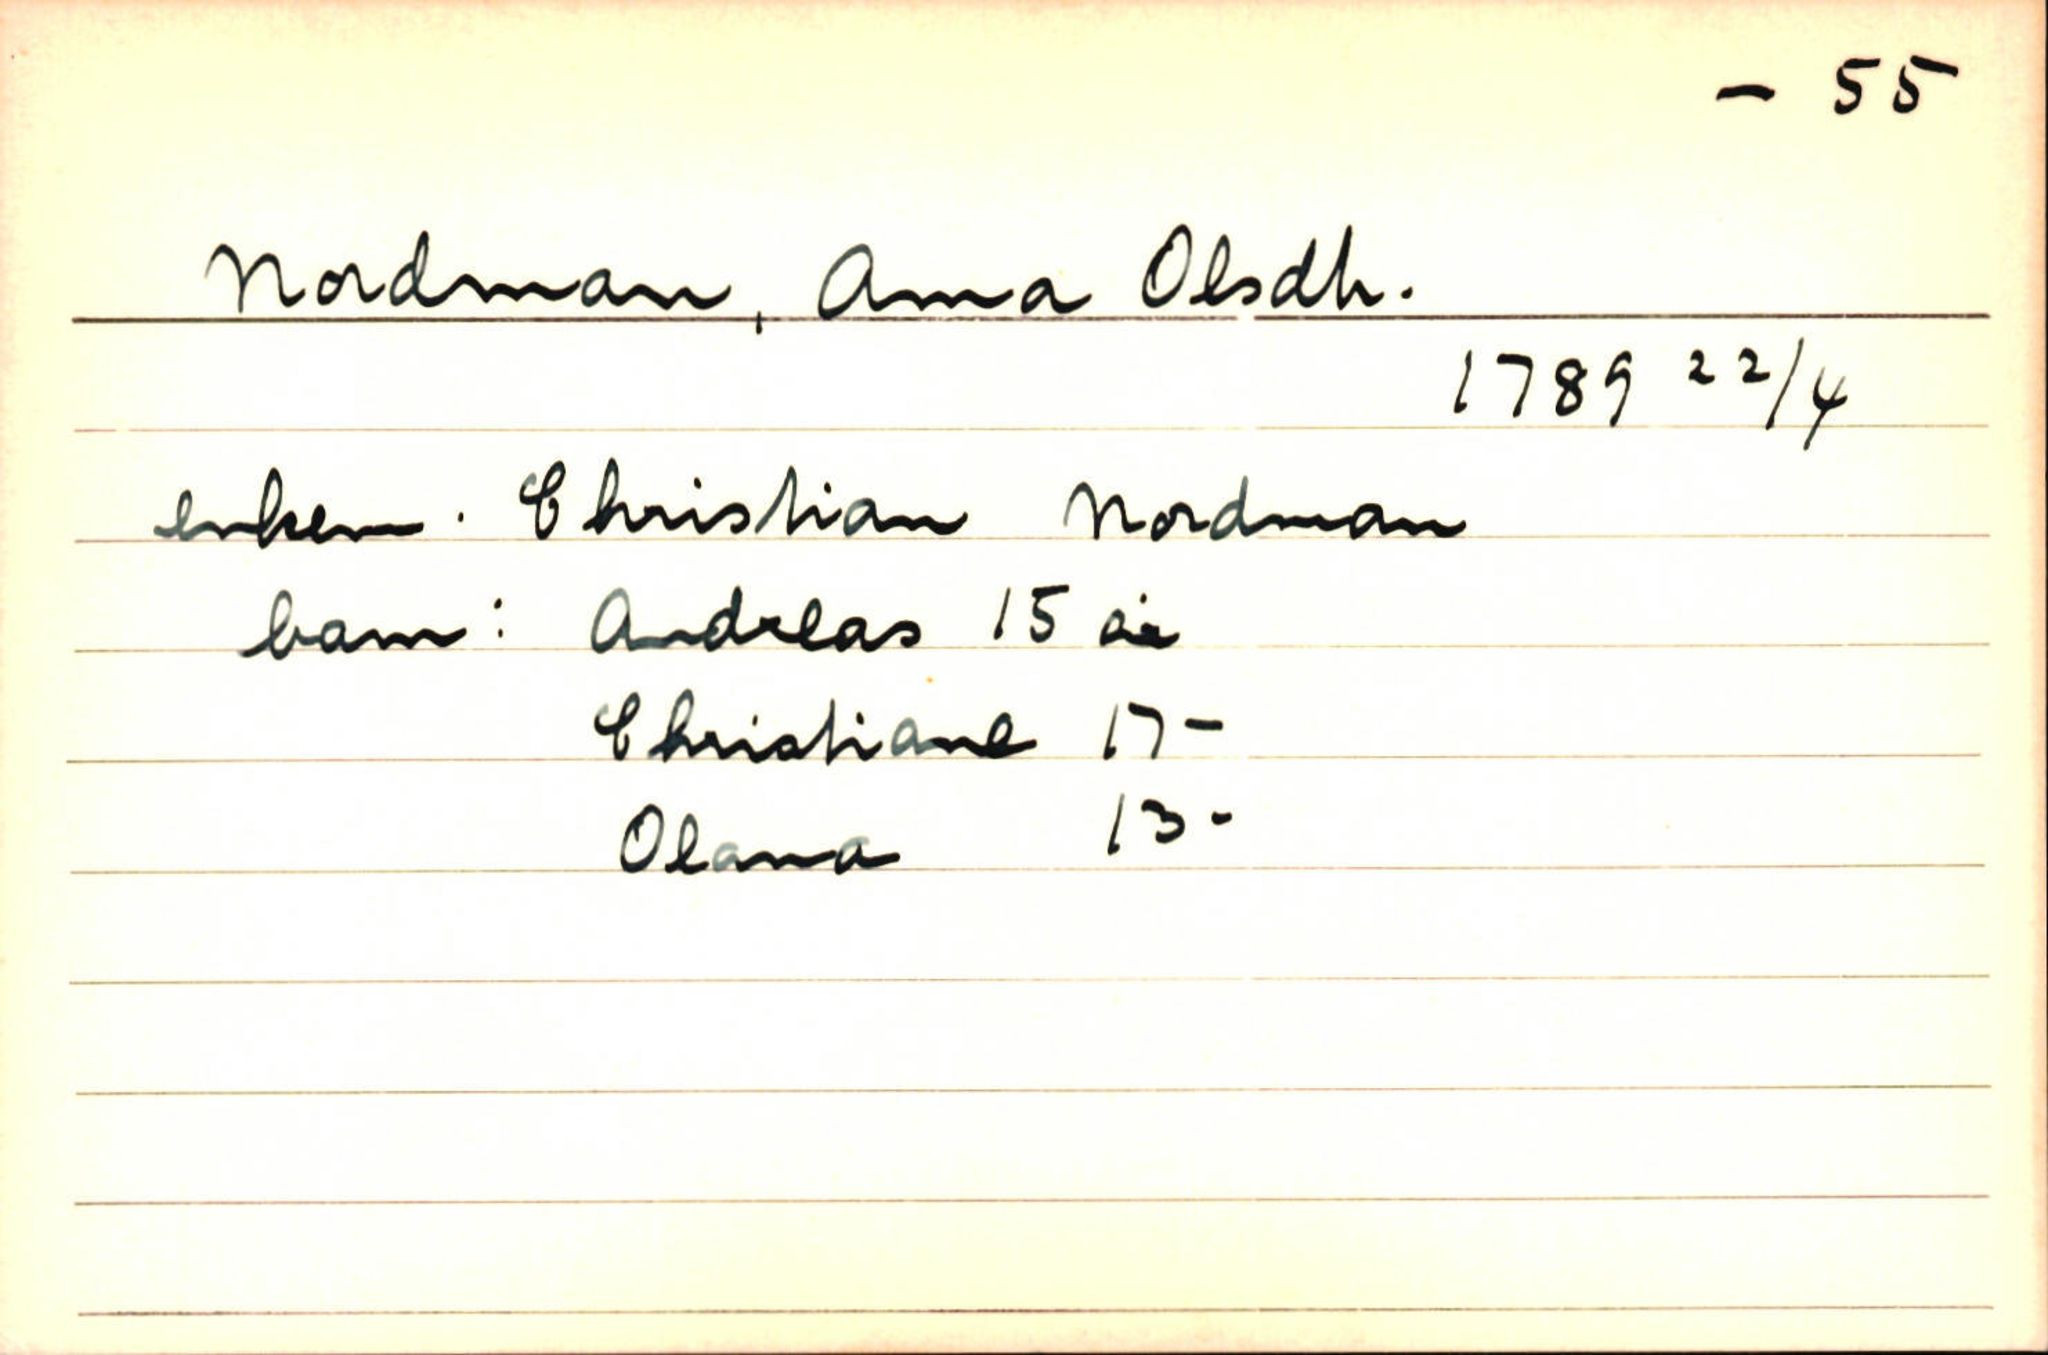 - 55
Nordman, Anna Olsdtr.
1789 22/4
enkem. Christian Nordman
barn: Andreas 15 år
Christiane 17 -
Olana 13 -